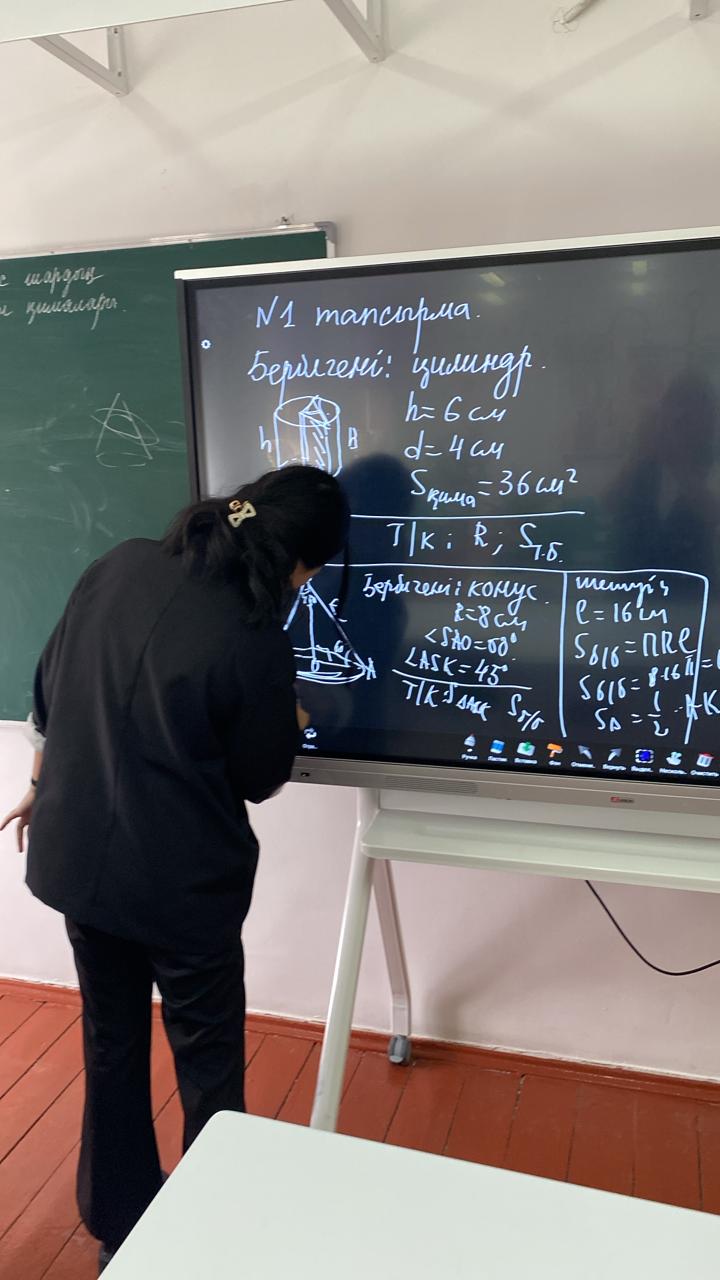 шардың
қималары.
N1 тапсырма.
Берілгені: цилиндр.
h
B
h=6 см
d=4 см
Sқима=36 см²
T/K: R; Sт.б.
Берілгені: конус.
R=8 см
∠SAO=60°
∠ASK=45°
T/K: SΔASK Sб/б
A
шешуі:
l=16 см
Sб/б=ПRl
Sб/б=8·16П=
SΔ=1/2
Ручка Ластик Вставка Фон Отмена Вернуть Очистить